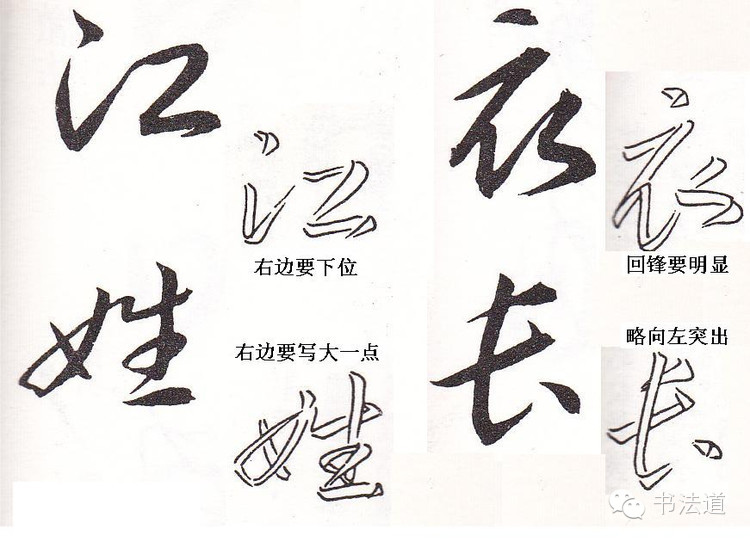 江
江
右边要下位
姓
右边要写大一点
姓
衣
衣
回锋要明显
长
略向左突出
长
书法道